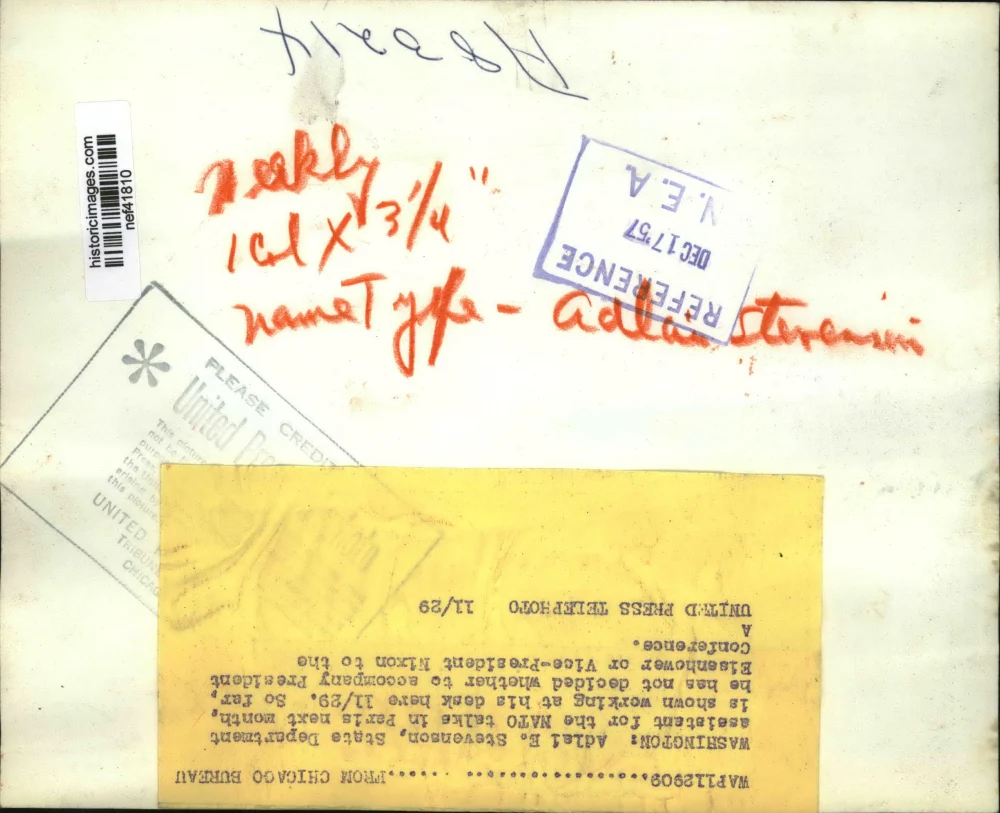 historicimages.com
nef41810
Weekly
1 Col X 3 1/4 "
name Type - Adlai Stevenson
REFERENCE
DEC 17 '57
N. E. A.
PLEASE CREDIT
United
This picture
not be
UNITED
WAP112909........................FROM CHICAGO BUREAU
WASHINGTON: Adlai E. Stevenson, State Department
assistant for the NATO talks in Paris next month,
is shown working at his desk here 11/29. So far,
he has not decided whether to accompany President
Eisenhower or Vice-President Nixon to the
Conference.
A
UNITED PRESS TELEPHOTO 11/29